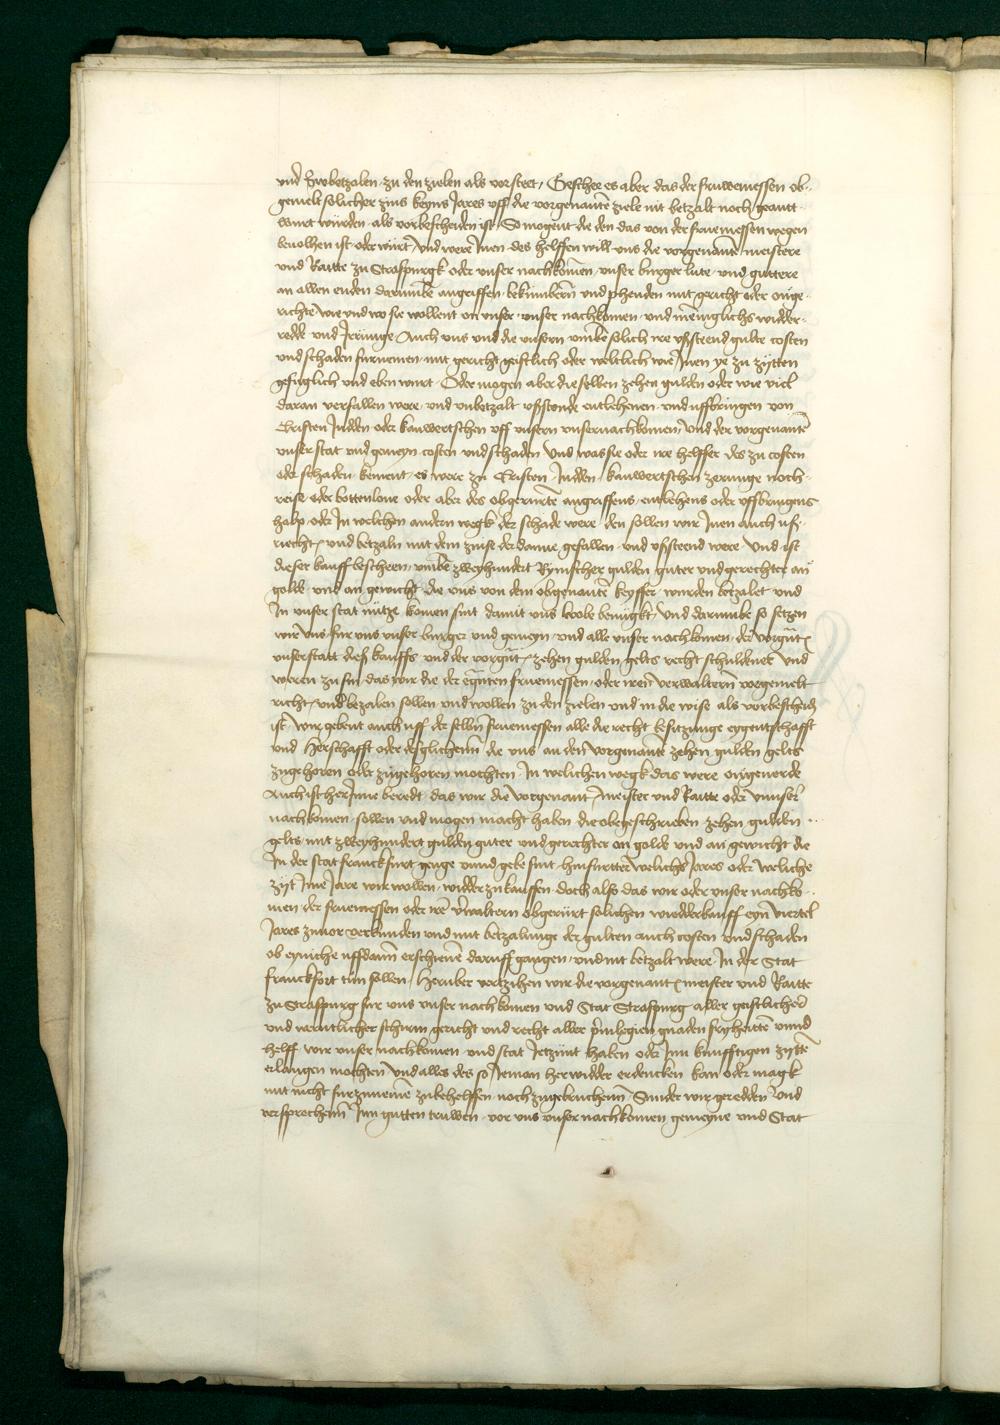 und zubetzalen zu den zielen als vorsteet, Geschee es aber das der fruwemessen ob-
gemelt solicher zins keyns Jares uff die vorgenante ziele nit betzalt noch geantt-
wurt würden als vorbescheiden ist, So mogent die den das von der fruemessen wegen
beuolhen ist oder würt, und were Inen des helffen will uns die vorgenante meistere
und Raitte zu Straspurgk oder unser nachkomen unser burger lute und guttere
an allen enden darumbe angriffen bekumbern und phenden mit gericht oder one ge-
richte wie und wo sie wollent on unser unser nachkomen und meniglichs widder-
redde und Jrrunge Auch uns und die unsern umbe solich ire ußsteend gulte costen
und schaden furnemen mit gericht geistlich oder weltlich wie Inen ye zu zytten
gefuglich und eben wurt Oder mogen aber die selben zehen gulden oder wie viel
daran verfallen were und unbetzalt ußstonde entlehenen und uffbringen von
Cristen Judden oder kauwertschen uff unsern unser nachkomen und der vorgenante
unser stat und gemeyn costen und schaden Und was sie oder ire helffer des zu costen
oder schaden kement es were zu Cristen Judden kauwertschen zerunge noch-
reise oder bottenlone oder aber des obgerurte angriffens entlehens oder uffbringens
halp oder In welchen andern wegk der schade were den sollen wir Inen auch uß-
riecht und betzaln mit dem zinse der danne gefallen und ußsteend were Und ist
dieser kauff bescheen umbe zweyhundert Rynischer gulden guter und gerechter an
golde und an gewicht die uns von dem obgenante keyffer wurden betzalet und
In unser stat nütze komen sint damit uns wole benügkt, Und darumbe so setzen
wir uns fur uns unser burger und gemeyn und alle unser nachkomen der vorgnt
unser statt dieß kauffs und der vorgnt zehen gulden gelts recht schuldener und
weren zu sin das wir die der egnten fruemessen oder iren verwaltern vorgemelt
richt und bezalen sollen und wollen zu den zielen und in die wise als vorbescheid
ist, wir gebent auch uff der selbn fruemessen alle die recht besitzunge eygentschafft
und Herschafft oder desglichenn die uns an den vorgenante zehen gulden gelts
zugehoren oder zugehoren mochten In welichen wegk das were ongeuerde
Auch ist her Inne beredt das wir die vorgenant meister und Raitte oder unnser
nachkomen sollen und mogen macht haben die obgeschrieben zehen gulden
gelts mit zweyhundert gulden guter und gerechter an golde und an gewicht die
In der stat franckfurt genge unnd gebe sint hinfurtter welichs Jares oder weliche
zyt Ime Jare wir wollen widder zu kauffen doch also das wir oder unser nachko-
men der fruemessen oder ire verwaltern obgerürt solichen wiedderkauff eyn viertel
Jares zuuor verkunden und mit betzalunge der gulten auch costen und schaden
ob eyniche uffdann erschienen daruff gangen und nit betzalt were In der Stat
franckfort tun sollen, Heruber vertzihen wir die vorgenant meister und Raitte
zu Straspurg fur uns unser nachkomen und Stat Straspurg aller geistlicher
und werntlicher schirm gericht und recht aller privilegien gnaden fryheitte unnd
helff wir unser nachkomen und stat Jetzunt haben oder Inn kunfftigen zytte
erlangen mochten und alles des so Jeman her widder erdencken kan oder magk
mit nicht furzunemen zubehelffen noch zugebruchenn Sunder wir geredden und
versprechenn Inn gutten truwen vor uns unser nachkomen gemeyne und Stat